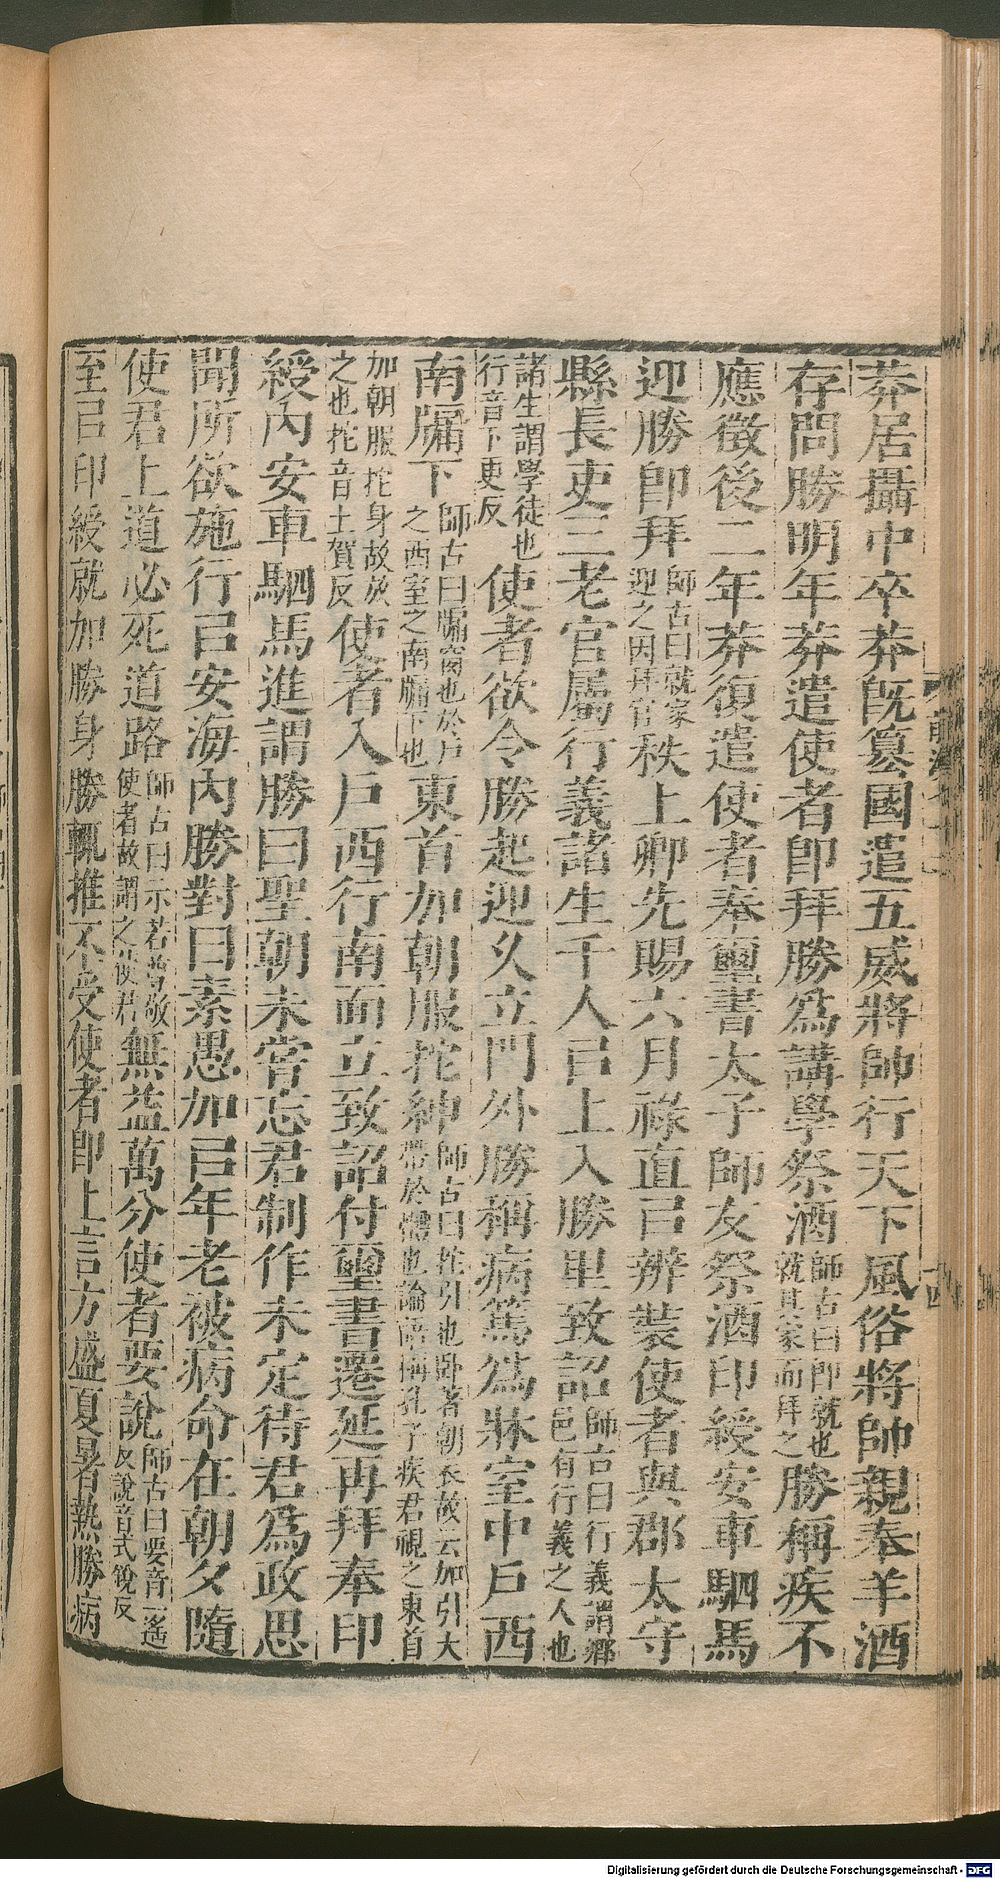 莽居攝中卒莽既篡國遣五威將帥行天下風俗將帥親奉羊酒
存問勝明年莽遣使者即拜勝為講學祭酒師古曰即就也就其家而拜之勝稱疾不
應徵後二年莽復遣使者奉璽書太子師友祭酒印綬安車駟馬
迎勝即拜師古曰就家迎之因拜官秩上卿先賜六月祿直㠯辨裝使者與郡太守
縣長吏三老官屬行義諸生千人㠯上入勝里致詔師古曰行義謂鄉邑有行義之人也
諸生謂學徒也行音下更反使者欲令勝起迎久立門外勝稱病篤為牀室中戶西
南牖下師古曰牖窗也於戶之西室之南牖下也東首加朝服拕紳師古曰拕引也臥著朝衣故云加引大帶於體也論語稱孔子疾君視之東首
加朝服拕身故放之也拕音土賀反使者入戶西行南面立致詔付璽書遷延再拜奉印
綬內安車駟馬進謂勝曰聖朝未嘗忘君制作未定待君為政思
聞所欲施行㠯安海內勝對曰素愚加㠯年老被病命在朝夕隨
使君上道必死道路師古曰示若尊敬使者故謂之使君無益萬分使者要說師古曰要音一遙反說音式銳反
至㠯印綬就加勝身勝輒推不受使者即上言方盛夏暑熱勝病
Digitalisierung gefördert durch die Deutsche Forschungsgemeinschaft - DFG